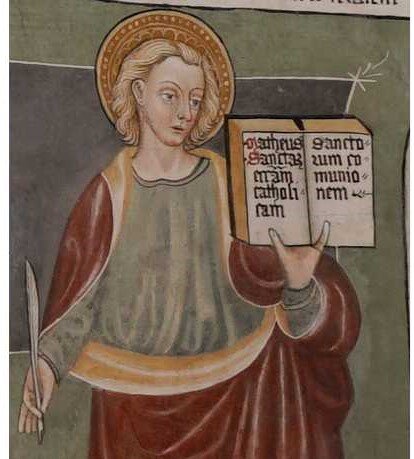 Matheus
Sanctaz
eccãm
catholi
cam
Sancto
rum co
munio
nem